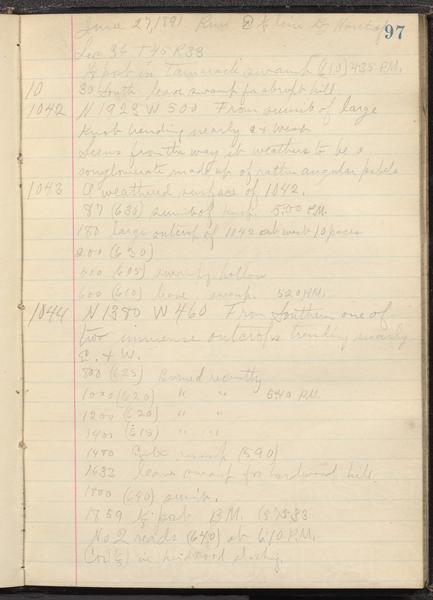 97
June 27, 1891. Run E & line by
Sec 36 T45 R33
¼ post in Tamarack swamp (610) 435 P.M.
10 30 South leave swamp for abrupt hill
1042 N 1923 W 500 From sumit of large
Knob trending nearly E & West
Seems from the way it weathers to be a
conglomerate made up of rather angular pebels
1043 A weathered surface of 1042.
87 (630) sumit of 5.00 P.M.
180 large outcrop of 1042 at west 10 paces
200 (630)
400 (605) swampy hollow
600 (610) leave swamp. 520 P.M.
1044 N 1380 W 460 From Southern one of
two immense outcrops trending nearly
E. & W.
800 (625) Burned recently
1000 (620) " " 540 P.M.
1200 (620) " "
1400 (615) " "
1480 swamp (590)
1633 leave swamp for hardwood hill
1800 (640) sumit.
1859 ¼ post B.M. (5)583
No 2 reads (640) at 6.10 P.M.
Cor in hardwood slashing.